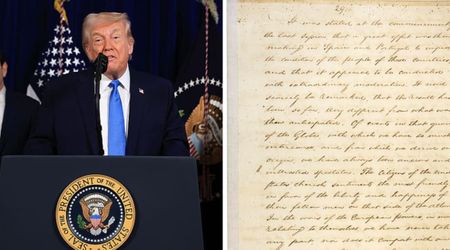 SEAL OF THE PRESIDENT OF THE UNITED STATES
It was stated at the commencement
the last session that a great effort was then
making in Spain and Portugal to improve
the condition of the people of those countries
and that it appeared to be conducted
with extraordinary moderation. It need
scarcely be remarked, that the result has
been, so far, very different from what was
then anticipated. Of events in that quarter
of the Globe with which we have so much
intercourse, and from which we derive our
origin, we have always been anxious and
interested spectators. The citizens of the
States cherish sentiments the most friendly
in favor of the liberty and happiness of
fellow men on that side of the
In the wars of the European powers in
relating to themselves we have never
any part nor does it comport with